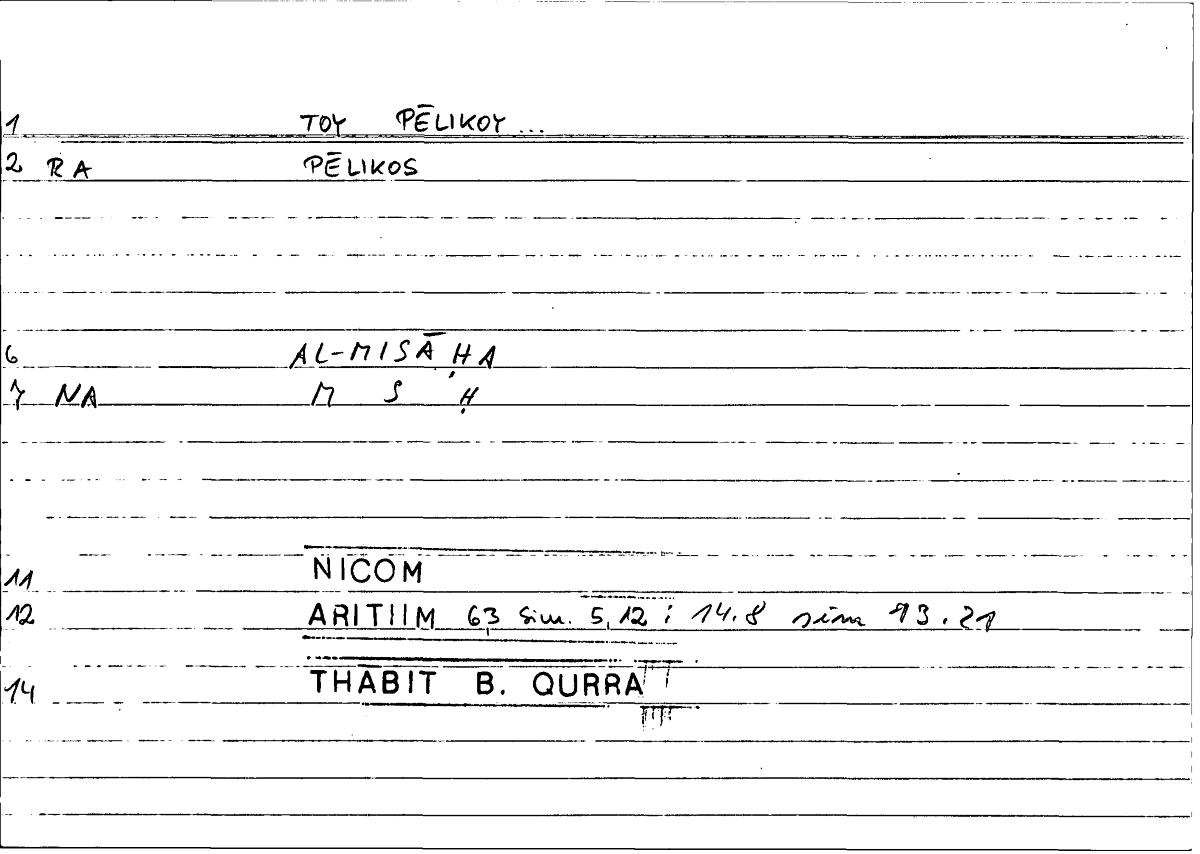 1 TOY PĒLIKOY...
2 RA PĒLIKOS
6 AL-MISĀḤA
7 NA M S Ḥ
11 NICOM
12 ARITIIM 63 sim. 5,12; 14.8 sim 13.21
14 THABIT B. QURRA